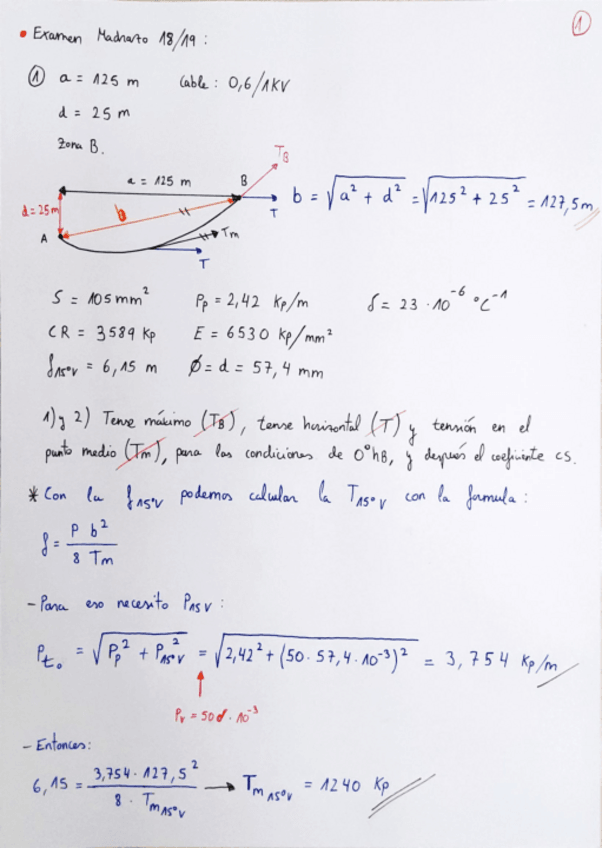 1
• Examen Madrasto 18/19:
① a = 125 m Cable: 0,6/1KV
d = 25 m
Zona B.
T_B
a = 125 m B
d = 25m b T b = √(a² + d²) = √(125² + 25²) = 127,5 m
A Tm
T
S = 105 mm² Pp = 2,42 Kp/m δ = 23 · 10⁻⁶ °C⁻¹
CR = 3589 Kp E = 6530 Kp/mm²
f15°V = 6,15 m Ø = d = 57,4 mm
1) y 2) Tense máximo (T_B), tense horizontal (T) y tensión en el
punto medio (Tm), para las condiciones de 0°hB, y después el coeficiente cs.
* Con la f15°V podemos calcular la T15°V con la formula:
f = P b² / 8 Tm
- Para eso necesito P15V:
Pt₀ = √(Pp² + P15°V²) = √(2,42² + (50 · 57,4 · 10⁻³)²) = 3,754 Kp/m
Pv = 50 d · 10⁻³
- Entonces:
6,15 = 3,754 · 127,5² / 8 · Tm15°V → Tm15°V = 1240 Kp